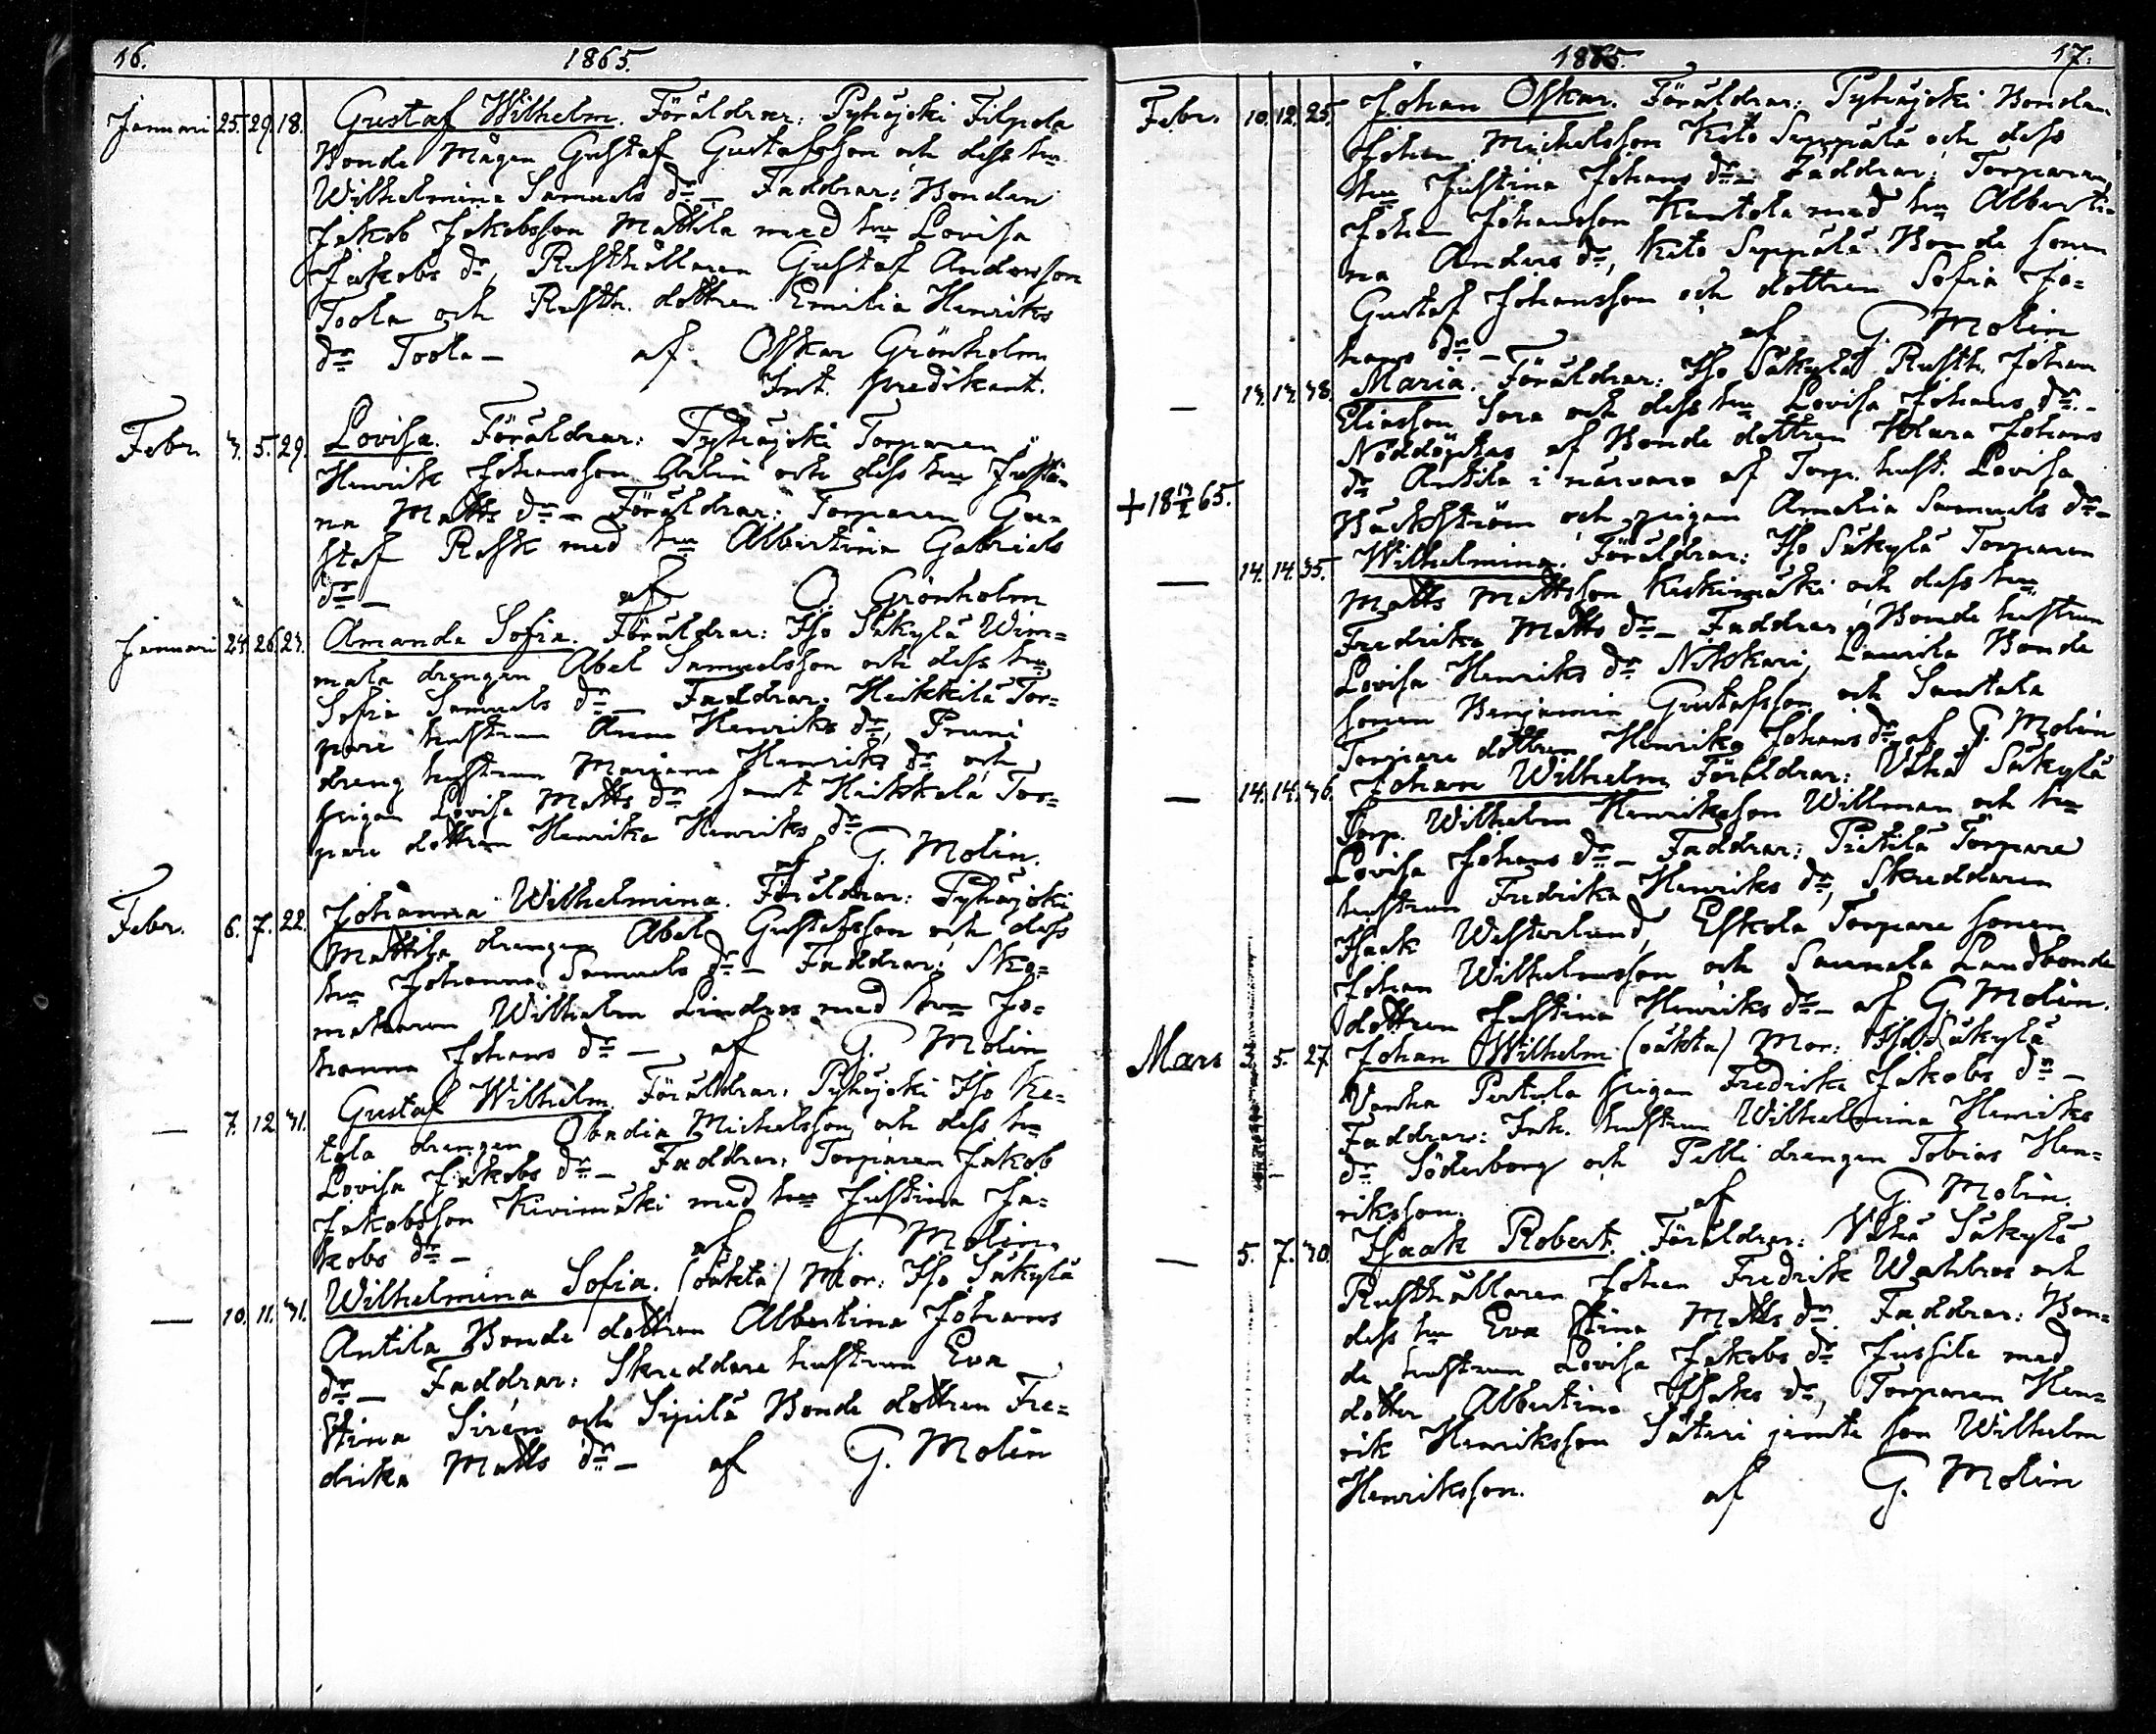 16. 1865.
Januari 25. 29. 18. Gustaf Wilhelm. Föräldrar: Pyhäjoki Filpola
Bonde Mågen Gustaf Gustafsson och dess hu
Wilhelmina Samuels dr — Faddrar: Bonden
Jakob Jakobsson Mattila med hu Lovisa
Jakobs dr, Rusthållaren Gustaf Andersson
Toola och Rusth. dottren Emilia Henriks
dr Toola — af Oskar Grönholm
Int. predikant.
Febr. 5. 29. Lovisa. Föräldrar: Pyhäjoki Torparen
Henrik Johansson och dess hu Justi-
na Matts dr — Föräldrar: Torparen Gu-
staf Rask med hu Albertina Gabriels
dr — af O. Grönholm
Januari 24. 26. Amanda Sofia. Föräldrar: Iso Säkylä Wim=
mala drengen Abel Samuelsson och dess hu
Sofia Samuels dr — Faddrar: Heikkilä Tor=
pare hustrun Anna Henriks dr, Pruni
dreng hustrun Mariana Henriks dr och
pigan Lovisa Matts dr samt Heikkilä Tor=
pare dottren Henrika Henriks dr
af G. Molin.
Febr. 6. 7. 22. Johanna Wilhelmina. Föräldrar: Pyhäjoki
Mattila drengen Abel Gustafsson och dess
hu Johanna Samuels dr — Faddrar: Sko=
makaren Wilhelm Lindros med hu Jo=
hanna Johans dr — af G. Molin
— 7. 12. 41. Gustaf Wilhelm. Föräldrar: Pyhäjoki Iso Ke=
tola drengen Obadia Michelsson och dess hu
Lovisa Jakobs dr — Faddrar: Torparen Jakob
Jakobsson Kivimäki med hu Justina Ja=
kobs dr — af G. Molin.
— 10. 11. 41. Wilhelmina Sofia. (oäkta) Mor: Iso Säkylä
Antila Bonde dottren Albertina Johans
dr — Faddrar: Skreddare hustrun Eva
Stina Sirén och Sipilä Bonde dottren Fre=
drika Matts dr — af G. Molin
1865. 17.
Febr. 10. 12. 25. Johan Oskar. Föräldrar: Pyhäjoki Bonden
Johan Michelsson Keto Seppälä och dess
hu Justina Johans dr — Faddrar: Torparen
Johan Johansson Kantola med hu Alberti=
na Anders dr, Keto Seppälä Bonde sonen
Gustaf Johansson och dottren Sofia Jo=
hans dr — af G. Molin
— 38. Maria. Föräldrar: Iso Säkylä Rusth. Johan
Eliasson Sora och dess hu Lovisa Johans dr. —
Nöddöptes af Bonde dottren Klara Johans
dr Antila i närvaro af Torp. hust. Lovisa
+ 18 65. Bäckström och pigan Amalia Samuels dr —
— 14. 14. 35. Wilhelmina. Föräldrar: Iso Säkylä Torparen
Matts Mattsson Keskimäki och dess hu
Fredrika Matts dr — Faddrar: Bonde hustrun
Lovisa Henriks dr Niskari, Laurila Bonde
sonen Benjamin Gustafsson och Santala
Torpare dottren Henrika Johans dr af G. Molin
— 14. 14. 46. Johan Wilhelm. Föräldrar: Vähä Säkylä
Torp. Wilhelm Henriksson Willman och hu
Lovisa Johans dr — Faddrar: Pietilä Torpare
hustrun Fredrika Henriks dr, Skreddaren
Isaak Westerlund, Eskola Torpare sonen
Johan Wilhelmsson och Saunala Landbonde
dottren Justina Henriks dr — af G. Molin.
Mars 3. 5. 27. Johan Wilhelm (oäkta) Mor: Iso Säkylä
Vanha Perttula pigan Fredrika Jakobs dr —
Faddrar: Inh. hustrun Wilhelmina Henriks
dr Söderborg och Pelli drengen Tobias Hen=
riksson. af G. Molin.
— 5. 7. 40. Isaak Robert. Föräldrar: Vähä Säkylä
Rusthållaren Johan Fredrik Wahlros och
dess hu Eva Stina Matts dr. Faddrar: Bon=
de hustrun Lovisa Jakobs dr Jussila med
dotter Albertina Isaks dr, Torparen Hen=
rik Henriksson Säteri jemte son Wilhelm
Henriksson. af G. Molin